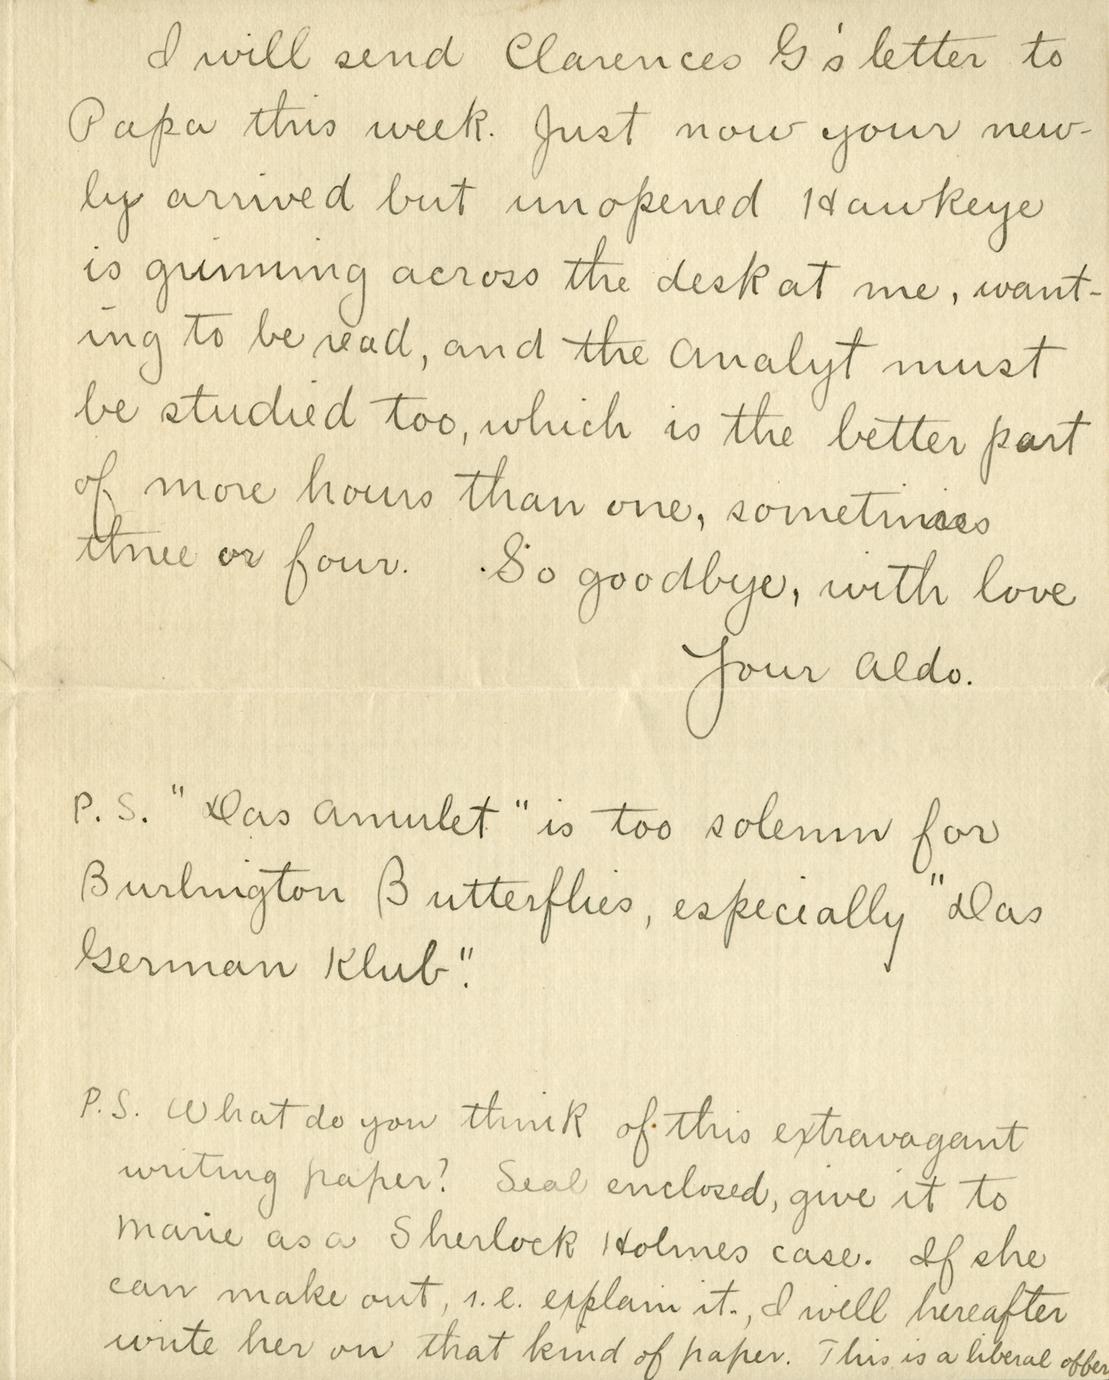 I will send Clarences G's letter to
Papa this week. Just now your new-
ly arrived but unopened Hawkeye
is grinning across the desk at me, want-
ing to be read, and the Analyt must
be studied too, which is the better part
of more hours than one, sometimes
three or four. So goodbye, with love
Your Aldo.
P.S. "Das Amulet" is too solemn for
Burlington Butterflies, especially "Das
German Klub".
P.S. What do you think of this extravagant
writing paper? Seal enclosed, give it to
Marie as a Sherlock Holmes case. If she
can make out, i.e. explain it, I will hereafter
write her on that kind of paper. This is a liberal offer